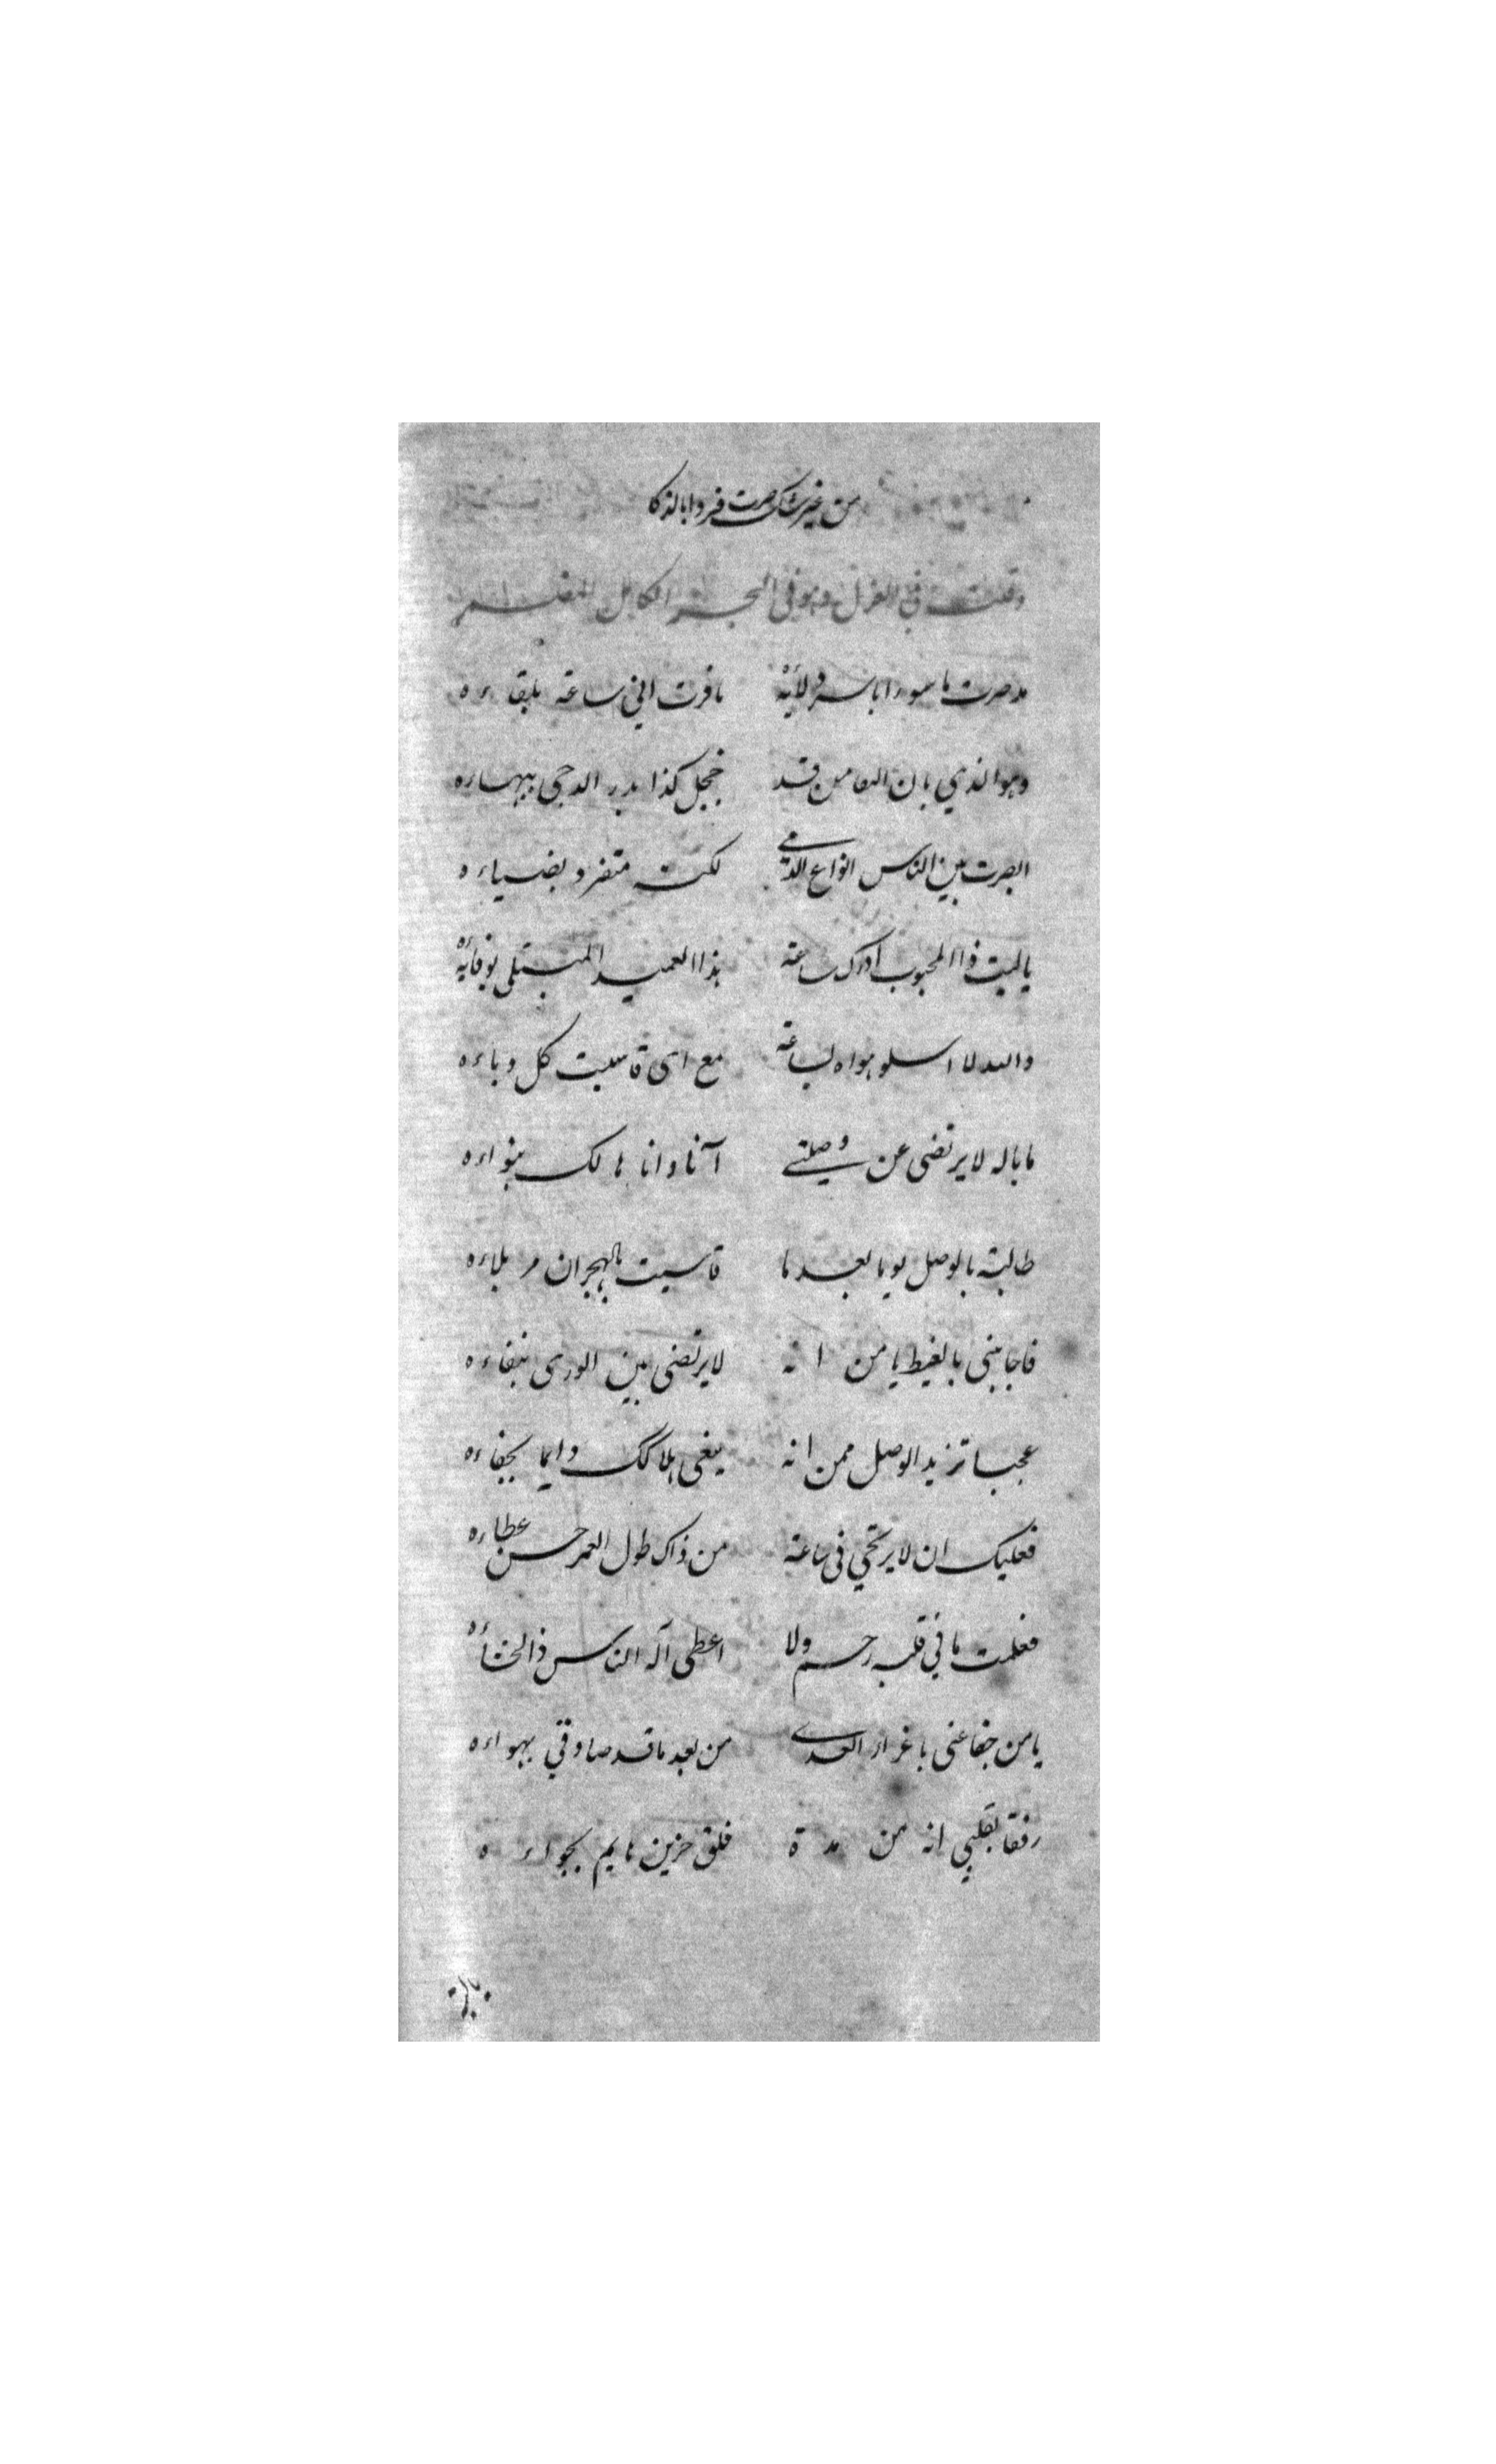 من غير شك صرت فردا بالذكا
وقلت في الغزل وهو في البحر الكامل المضمر
مذ صرت ماسورا باسر ولائه ما فزت اني ساعة بلقاءه
وهو الذي بان النقا من قده خجل كذا بدر الدجى ببهاءه
ابصرت بين الناس انواع الدمى لكنه متفرد بضياءه
يا ليت ذا المحبوب ادرك ساعة هذا العميد المبتلى بوفائه
والله لا اسلو هواه لساعة مع اى قاسيت كل وباءه
ما باله لا يرتضى عن وصلتي آنا وانا هالك بنواءه
طالبته بالوصل يوما بعد ما قاسيت بالهجران مر بلاءه
فاجابنى بالغيظ يا من انه لا يرتضى بين الورى ببقاءه
عجبا تريد الوصل ممن انه يبغى هلاكك دايما بجفاءه
فعليك ان لا يرتجي في ساعة من ذاك طول العمر حسن عطاءه
فعلمت ما في قلبه رحم ولا اعطى آله الناس ذا
يا من جفا عنى باغراء العدى من بعد ما قد صادنى بهواءه
رفقا بقلبي انه من مدة قلق حزين هايم بجواءه